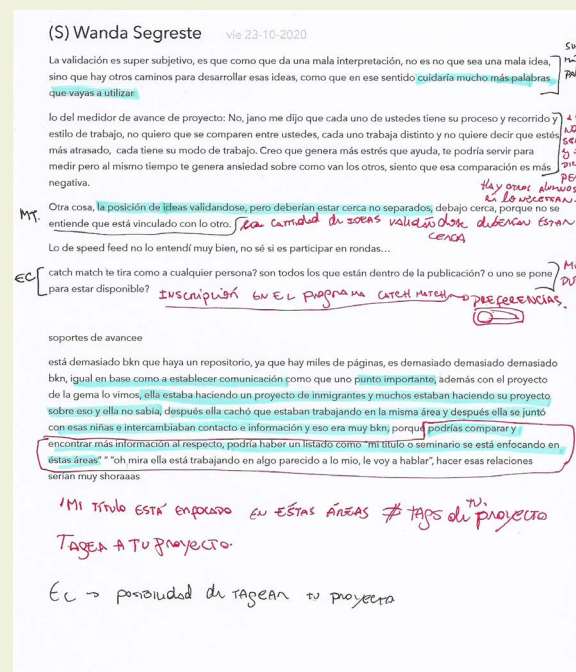 (S) Wanda Segreste vie 23-10-2020
La validación es super subjetivo, es que como que da una mala interpretación, no es no que sea una mala idea,
sino que hay otros caminos para desarrollar esas ideas, como que en ese sentido cuidaría mucho más palabras
que vayas a utilizar
lo del medidor de avance de proyecto: No, jano me dijo que cada uno de ustedes tiene su proceso y recorrido y
estilo de trabajo, no quiero que se comparen entre ustedes, cada uno trabaja distinto y no quiere decir que estés
más atrasado, cada tiene su modo de trabajo. Creo que genera más estrés que ayuda, te podría servir para
medir pero al mismo tiempo te genera ansiedad sobre como van los otros, siento que esa comparación es más
negativa.
Hay otros alumnos
si lo necesitan.
MT.
Otra cosa, la posición de ideas validandose, pero deberían estar cerca no separados, debajo cerca, porque no se
entiende que está vinculado con lo otro. La cantidad de IDEAS validándose deberían estar
cerca
Lo de speed feed no lo entendí muy bien, no sé si es participar en rondas...
EC
catch match te tira como a cualquier persona? son todos los que están dentro de la publicación? o uno se pone
para estar disponible? Inscripción EN EL PROGRAMA CATCH MATCH PREFERENCIAS.
soportes de avancee
está demasiado bkn que haya un repositorio, ya que hay miles de páginas, es demasiado demasiado demasiado
bkn, igual en base como a establecer comunicación como que uno punto importante, además con el proyecto
de la gema lo vimos, ella estaba haciendo un proyecto de inmigrantes y muchos estaban haciendo su proyecto
sobre eso y ella no sabía, después ella cachó que estaban trabajando en la misma área y después ella se juntó
con esas niñas e intercambiaban contacto e información y eso era muy bkn, porque podrías comparar y
encontrar más información al respecto, podría haber un listado como "mi título o seminario se está enfocando en
éstas áreas" " "oh mira ella está trabajando en algo parecido a lo mio, le voy a hablar", hacer esas relaciones
serían muy shoraaas
"Mi Título ESTÁ ENFOCADO EN ESTAS ÁREAS ≠ TAGS de tu proyecto
TAGEA A TU PROYECTO.
EC → posibilidad de TAGEAR tu proyecto